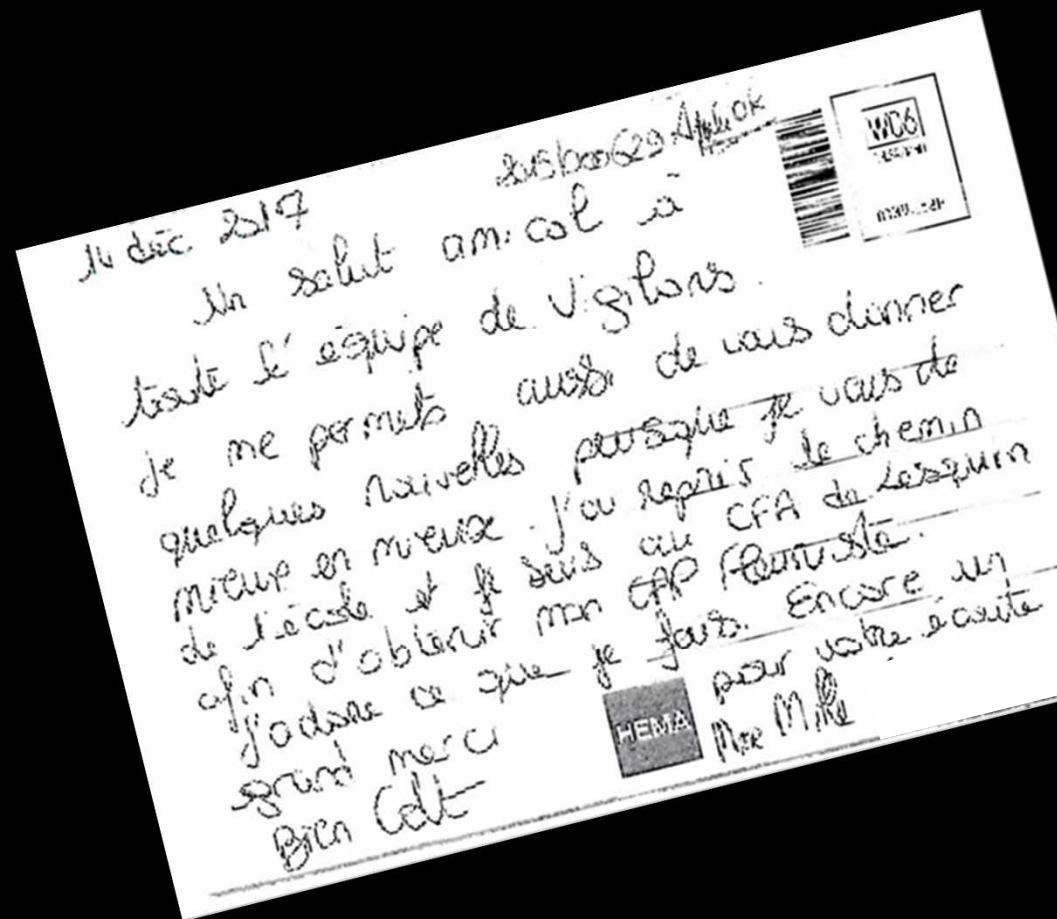 14 déc 2017
Un salut amical à
toute l'équipe de Vigilans.
je me permets aussi de vous donner
quelques nouvelles puisque je vais de
mieux en mieux. J'ai repris le chemin
de l'école et je suis au CFA de Lesquin
afin d'obtenir mon CAP fleuriste.
J'adore ce que je fais. Encore un
grand merci pour votre écoute
Bien Cdt
Mme
HEMA
WC6